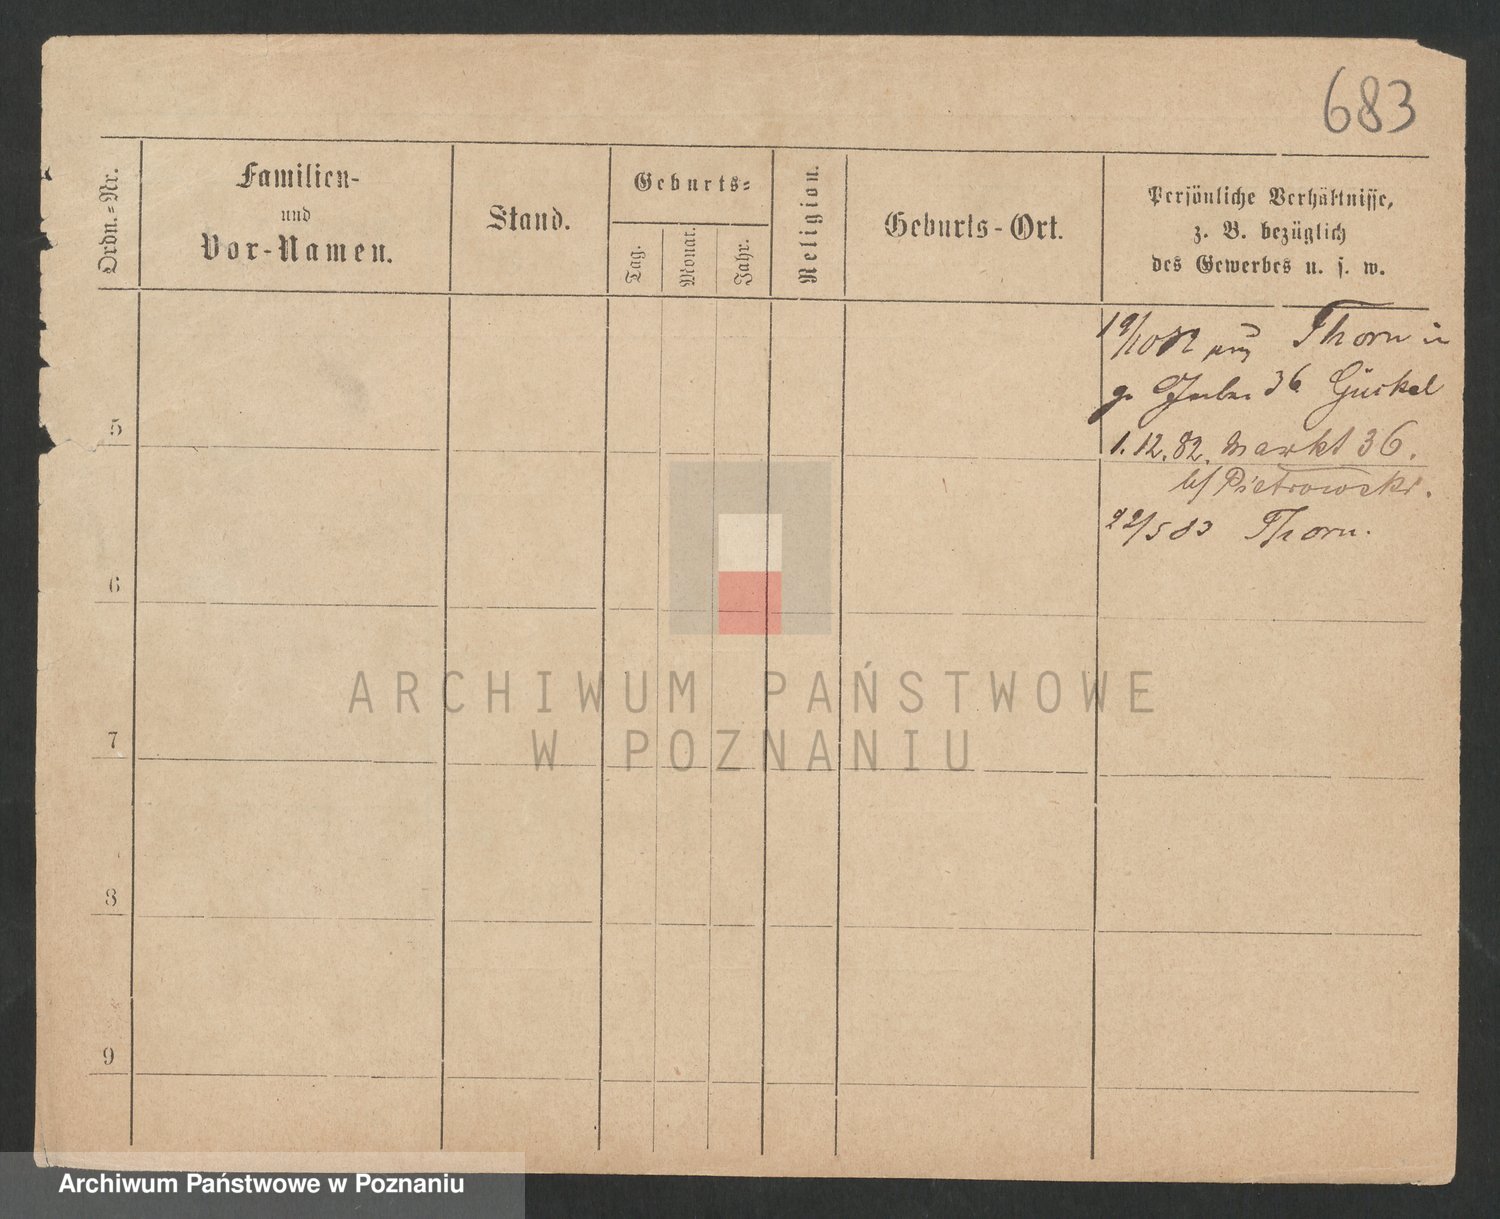 683
Ordn.-Nr.
Familien-
und
Vor-Namen.
Stand.
Geburts-
Tag.
Monat.
Jahr.
Religion.
Geburts-Ort.
Persönliche Verhältnisse,
z. B. bezüglich
des Gewerbes u. s. w.
19/10 82 aus Thorn in
36
5
1.12.82. Markt 36.
b/ Pietrowski.
22/5 83 Thorn.
6
7
8
9
ARCHIWUM PAŃSTWOWE
W POZNANIU
Archiwum Państwowe w Poznaniu